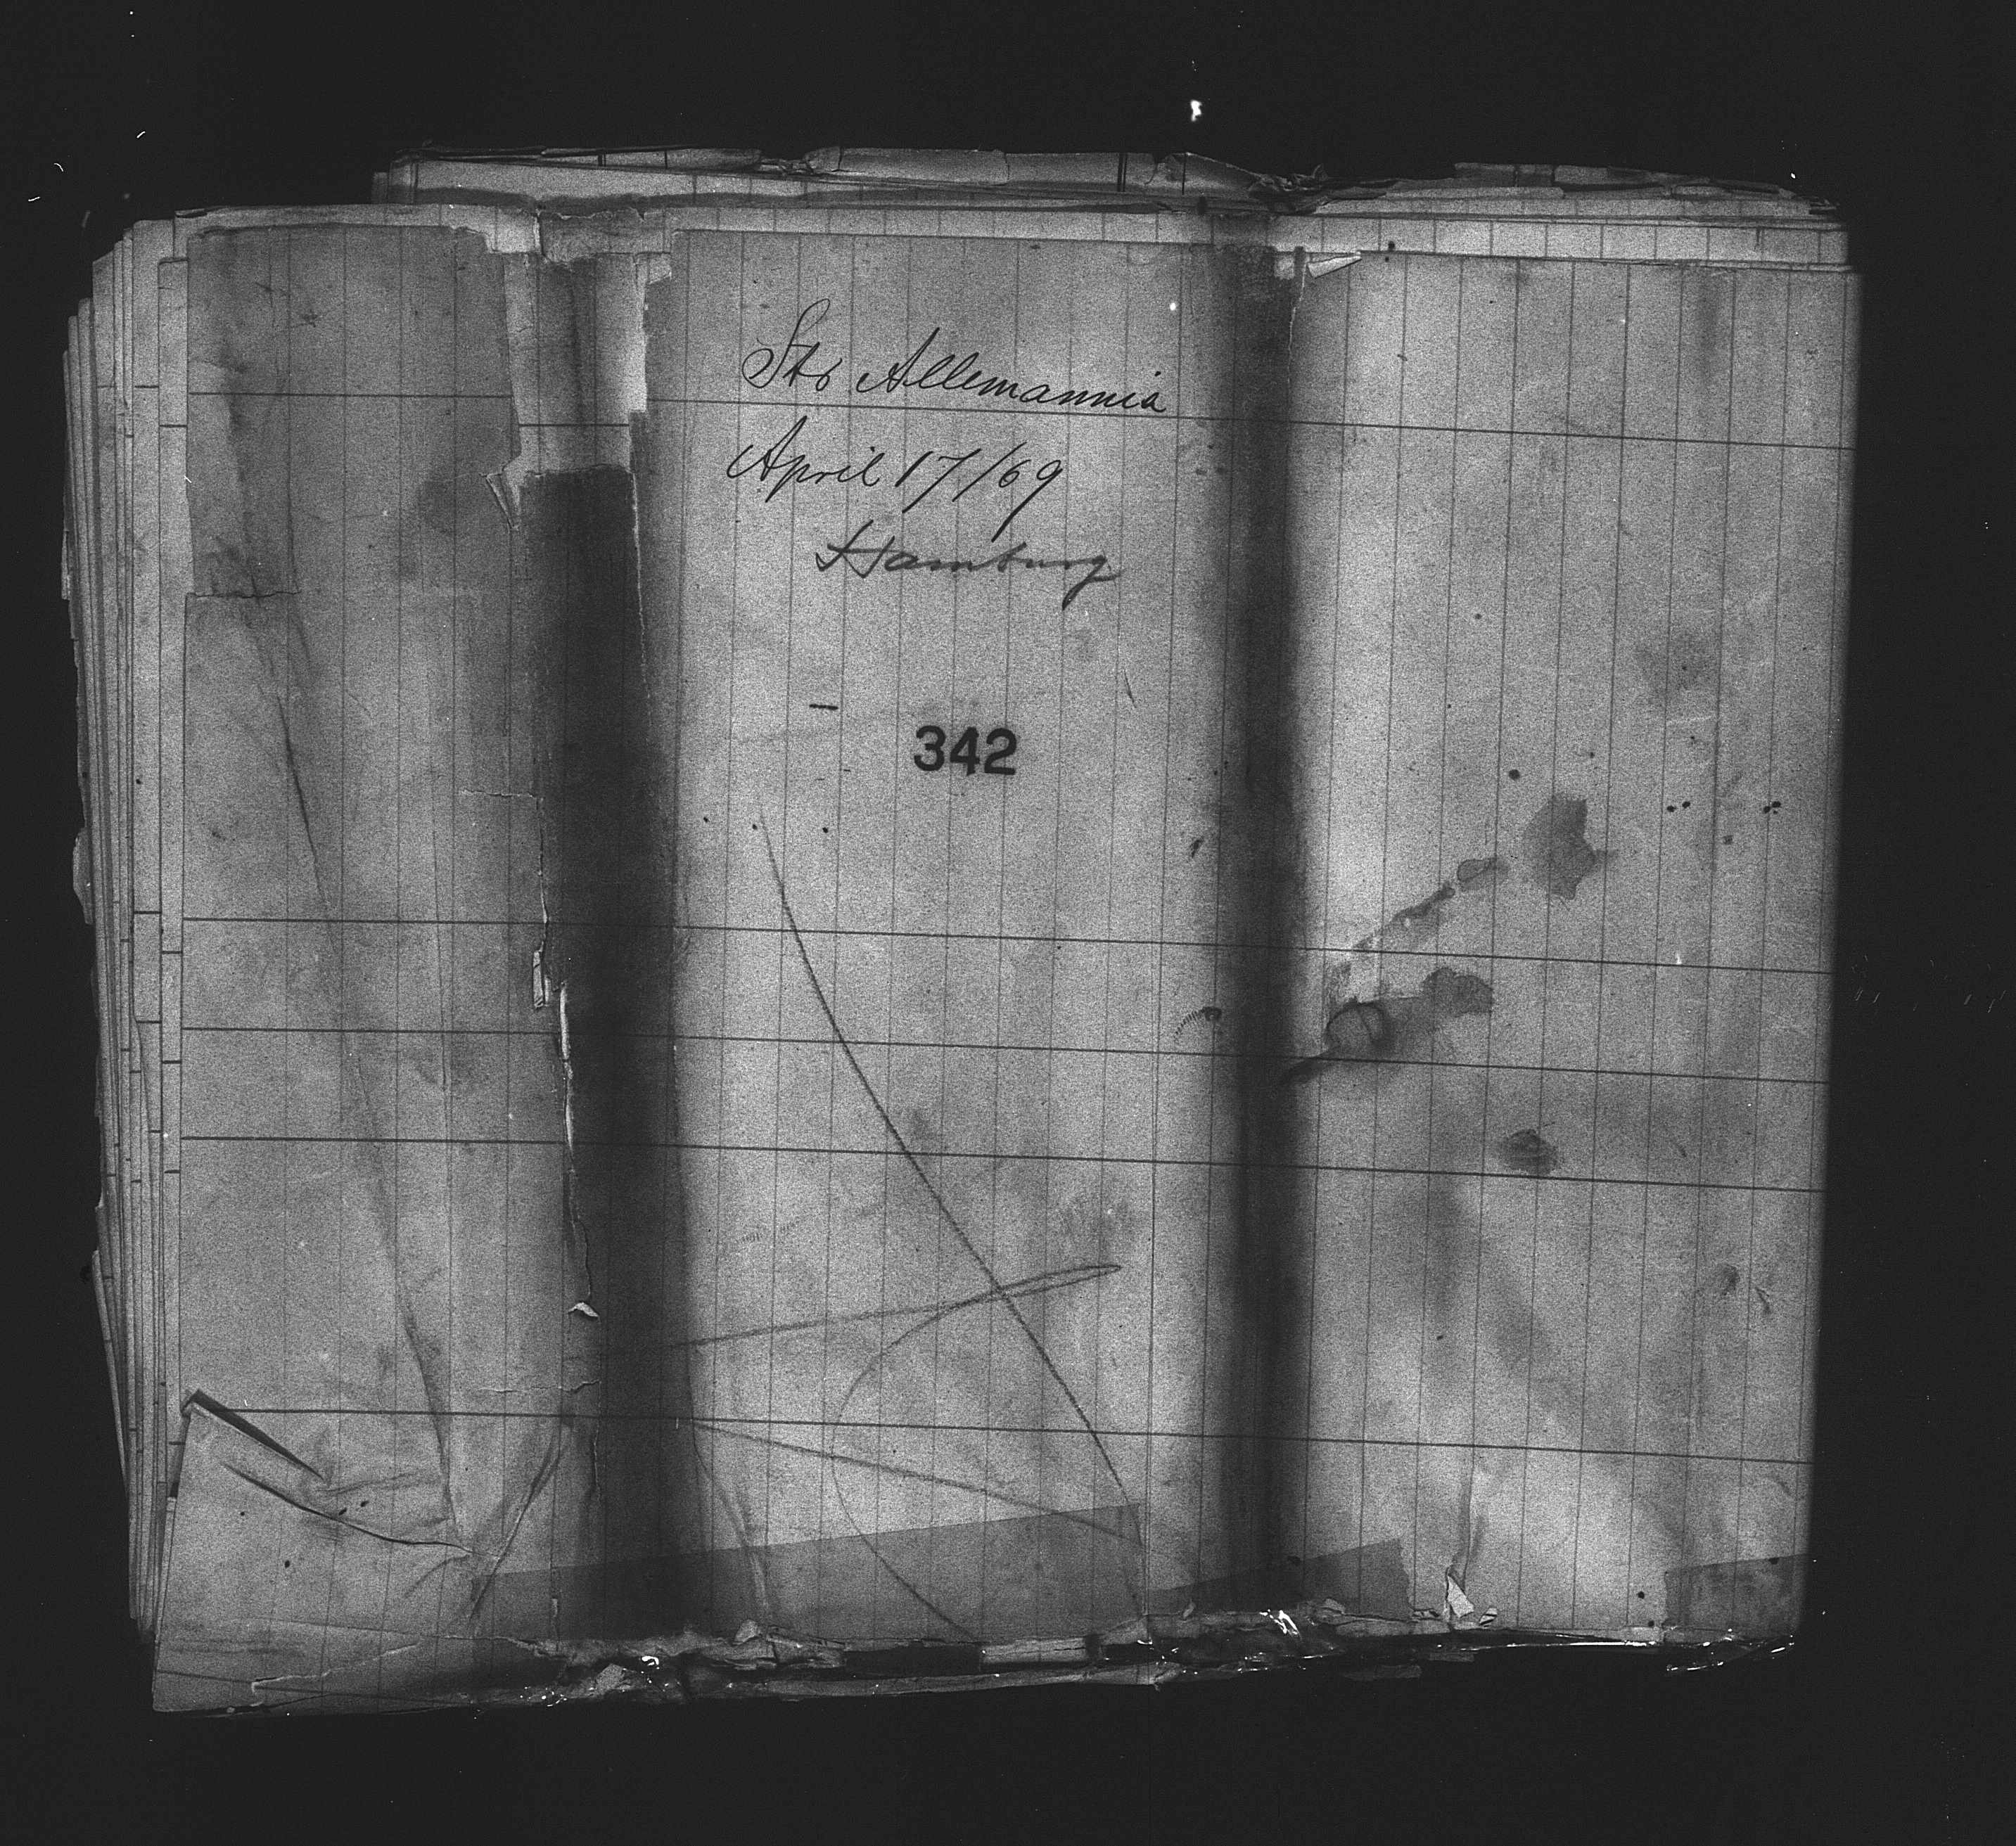 Str Allemannia
April 17/69
Hamburg
342